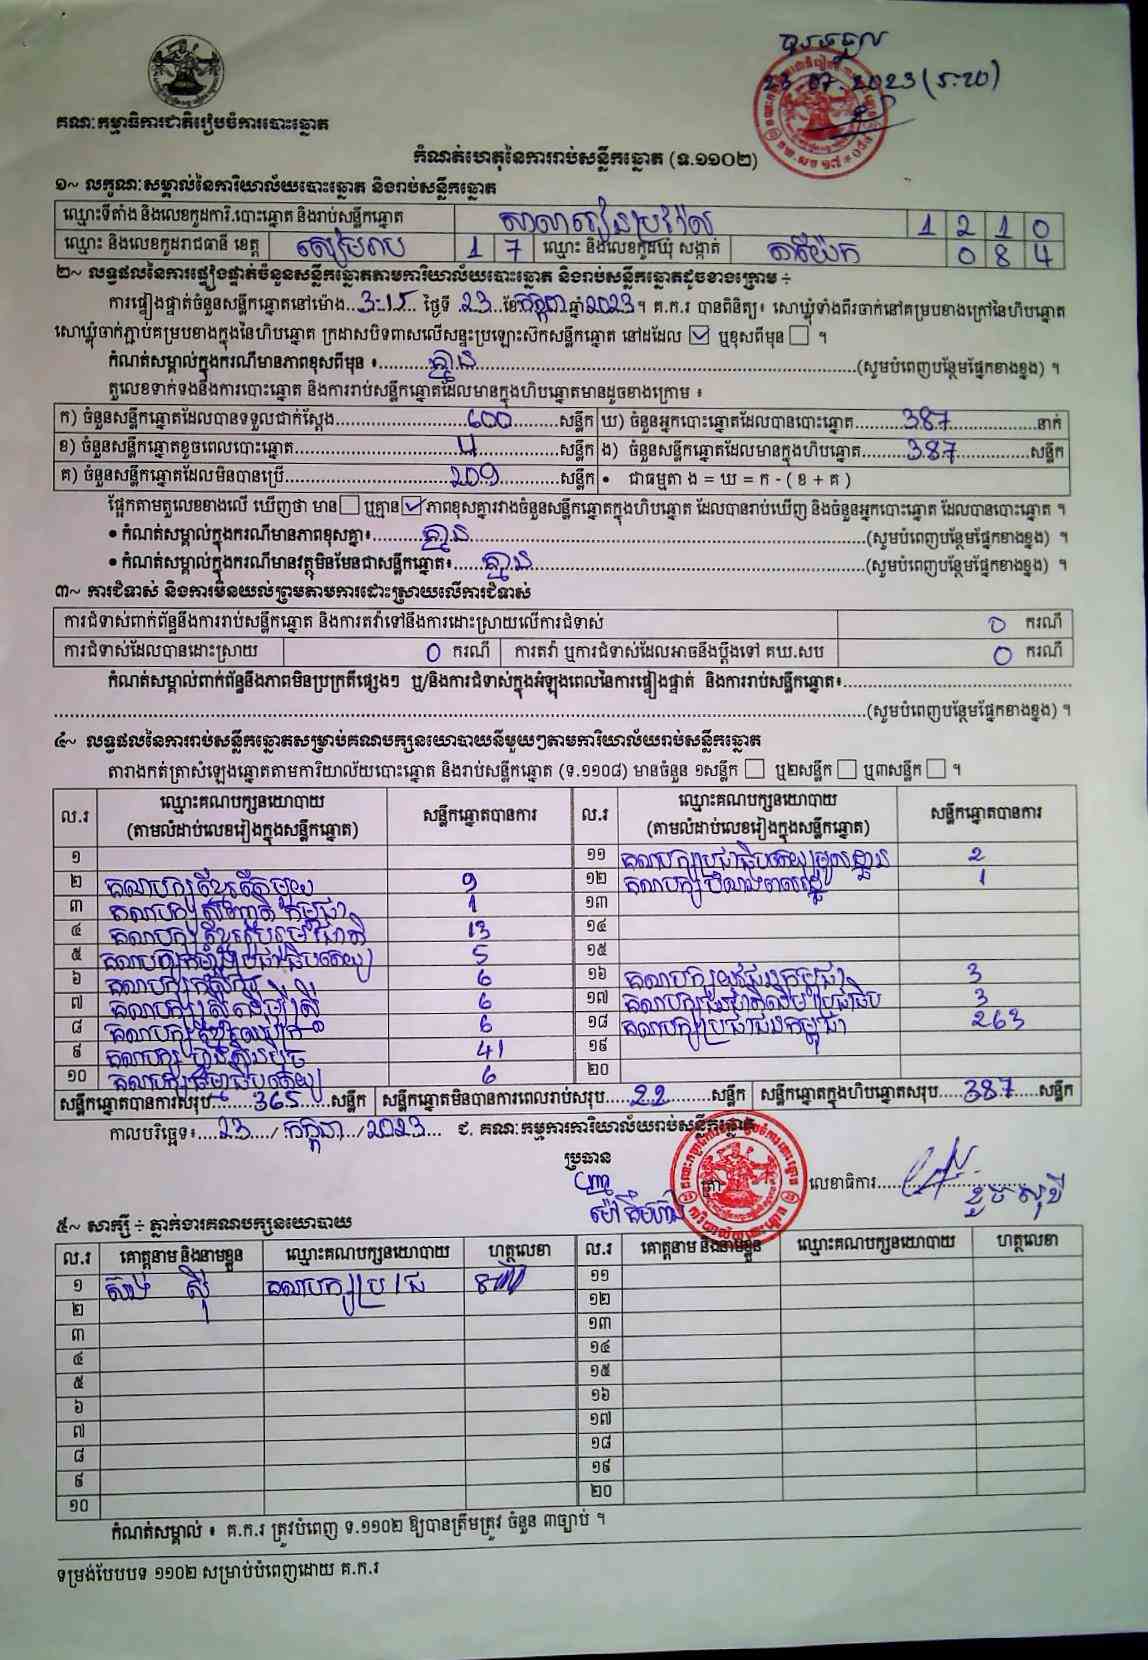 បានទទួល
23.07.2023 (រ:ឃ)
គណៈកម្មាធិការជាតិរៀបចំការបោះឆ្នោត
កំណត់ហេតុនៃការរាប់សន្លឹកឆ្នោត (ទ.១១០២)
១~ លក្ខណៈសម្គាល់នៃការិយាល័យបោះឆ្នោត និងរាប់សន្លឹកឆ្នោត
ឈ្មោះទីតាំង និងលេខកូដការិ.បោះឆ្នោត និងរាប់សន្លឹកឆ្នោត 1 2 1 0
ឈ្មោះ និងលេខកូដរាជធានី ខេត្ត សៀមរាប 1 7 ឈ្មោះ និងលេខកូដឃុំ សង្កាត់ 0 8 4
២~ លទ្ធផលនៃការផ្ទៀងផ្ទាត់ចំនួនសន្លឹកឆ្នោតតាមការិយាល័យបោះឆ្នោត និងរាប់សន្លឹកឆ្នោតដូចខាងក្រោម ÷
ការផ្ទៀងផ្ទាត់ចំនួនសន្លឹកឆ្នោតនៅម៉ោង...3:15... ថ្ងៃទី .23...ខែកក្កដា ឆ្នាំ2023។ គ.ក.រ បានពិនិត្យ៖ សោឃ្លុំទាំងពីរចាក់នៅគម្របខាងក្រៅនៃហិបឆ្នោត
សោឃ្លុំចាក់ភ្ជាប់គម្របខាងក្នុងនៃហិបឆ្នោត ក្រដាសបិទពាសលើសន្ទះប្រឡោះស៊កសន្លឹកឆ្នោត នៅដដែល ☑ ឬខុសពីមុន ☐ ។
កំណត់សម្គាល់ក្នុងករណីមានភាពខុសពីមុន ៖......គ្មាន......(សូមបំពេញបន្ថែមផ្នែកខាងខ្នង) ។
តួលេខទាក់ទងនឹងការបោះឆ្នោត និងការរាប់សន្លឹកឆ្នោតដែលមានក្នុងហិបឆ្នោតមានដូចខាងក្រោម ៖
ក) ចំនួនសន្លឹកឆ្នោតដែលបានទទួលជាក់ស្តែង......600......សន្លឹក ឃ) ចំនួនអ្នកបោះឆ្នោតដែលបានបោះឆ្នោត......387......នាក់
ខ) ចំនួនសន្លឹកឆ្នោតខូចពេលបោះឆ្នោត......4......សន្លឹក ង) ចំនួនសន្លឹកឆ្នោតដែលមានក្នុងហិបឆ្នោត......387......សន្លឹក
គ) ចំនួនសន្លឹកឆ្នោតដែលមិនបានប្រើ......209......សន្លឹក • ជាធម្មតា ង = ឃ = ក - ( ខ + គ )
ផ្អែកតាមតួលេខខាងលើ ឃើញថា មាន ☐ ឬគ្មាន ☑ ភាពខុសគ្នារវាងចំនួនសន្លឹកឆ្នោតក្នុងហិបឆ្នោត ដែលបានរាប់ឃើញ និងចំនួនអ្នកបោះឆ្នោត ដែលបានបោះឆ្នោត ។
• កំណត់សម្គាល់ក្នុងករណីមានភាពខុសគ្នា៖......គ្មាន......(សូមបំពេញបន្ថែមផ្នែកខាងខ្នង) ។
• កំណត់សម្គាល់ក្នុងករណីមានវត្ថុមិនមែនជាសន្លឹកឆ្នោត៖......គ្មាន......(សូមបំពេញបន្ថែមផ្នែកខាងខ្នង) ។
៣~ ការជំទាស់ និងការមិនយល់ព្រមតាមការដោះស្រាយលើការជំទាស់
ការជំទាស់ពាក់ព័ន្ធនឹងការរាប់សន្លឹកឆ្នោត និងការតវ៉ាទៅនឹងការដោះស្រាយលើការជំទាស់ 0 ករណី
ការជំទាស់ដែលបានដោះស្រាយ 0 ករណី ការតវ៉ា ឬការជំទាស់ដែលអាចនឹងប្តឹងទៅ គឃ.សប 0 ករណី
កំណត់សម្គាល់ពាក់ព័ន្ធនឹងភាពមិនប្រក្រតីផ្សេងៗ ឬ/និងការជំទាស់ក្នុងអំឡុងពេលនៃការផ្ទៀងផ្ទាត់ និងការរាប់សន្លឹកឆ្នោត៖......
......(សូមបំពេញបន្ថែមផ្នែកខាងខ្នង) ។
៤~ លទ្ធផលនៃការរាប់សន្លឹកឆ្នោតសម្រាប់គណបក្សនយោបាយនីមួយៗតាមការិយាល័យរាប់សន្លឹកឆ្នោត
តារាងកត់ត្រាសំឡេងឆ្នោតតាមការិយាល័យបោះឆ្នោត និងរាប់សន្លឹកឆ្នោត (ទ.១១០៨) មានចំនួន ១សន្លឹក ☐ ឬ២សន្លឹក ☐ ឬ៣សន្លឹក ☐ ។
ល.រ ឈ្មោះគណបក្សនយោបាយ (តាមលំដាប់លេខរៀងក្នុងសន្លឹកឆ្នោត) សន្លឹកឆ្នោតបានការ ល.រ ឈ្មោះគណបក្សនយោបាយ (តាមលំដាប់លេខរៀងក្នុងសន្លឹកឆ្នោត) សន្លឹកឆ្នោតបានការ
១ ១១ គណបក្សប្រជាធិបតេយ្យមូលដ្ឋាន 2
២ គណបក្សខ្មែរតែមួយ 9 ១២ គណបក្ស 1
៣ គណបក្ស កម្ពុជា 1 ១៣
៤ គណបក្សខ្មែររួបរួមជាតិ 13 ១៤
៥ គណបក្សកម្លាំងប្រជាធិបតេយ្យ 5 ១៥
៦ គណបក្សកសិករ 6 ១៦ គណបក្សយុវជនកម្ពុជា 3
៧ គណបក្សស្ត្រីដើម្បីស្ត្រី 6 ១៧ គណបក្ស 3
៨ គណបក្ស 6 ១៨ គណបក្សប្រជាជនកម្ពុជា 263
៩ គណបក្ស ហ្វ៊ុនស៊ិនប៉ិច 41 ១៩
១០ គណបក្សធម្មាធិបតេយ្យ 6 ២០
សន្លឹកឆ្នោតបានការសរុប......365......សន្លឹក សន្លឹកឆ្នោតមិនបានការពេលរាប់សរុប......22......សន្លឹក សន្លឹកឆ្នោតក្នុងហិបឆ្នោតសរុប......387......សន្លឹក
កាលបរិច្ឆេទ៖....23..../ កក្កដា ./2023... ជ. គណៈកម្មការការិយាល័យរាប់សន្លឹកឆ្នោត
ប្រធាន
ត្រា លេខាធិការ......
៥~ សាក្សី ÷ ភ្នាក់ងារគណបក្សនយោបាយ
ល.រ គោត្តនាម និងនាមខ្លួន ឈ្មោះគណបក្សនយោបាយ ហត្ថលេខា ល.រ គោត្តនាម និងនាមខ្លួន ឈ្មោះគណបក្សនយោបាយ ហត្ថលេខា
១ គណបក្សប្រ/ជ ១១
២ ១២
៣ ១៣
៤ ១៤
៥ ១៥
៦ ១៦
៧ ១៧
៨ ១៨
៩ ១៩
១០ ២០
កំណត់សម្គាល់ ៖ គ.ក.រ ត្រូវបំពេញ ទ.១១០២ ឱ្យបានត្រឹមត្រូវ ចំនួន ៣ច្បាប់ ។
ទម្រង់បែបបទ ១១០២ សម្រាប់បំពេញដោយ គ.ក.រ